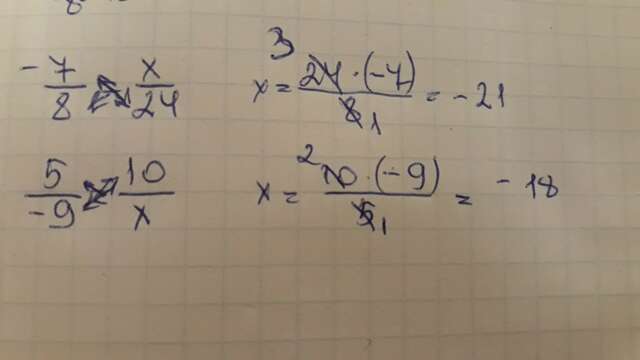 -7/8 x/24 x = 3 24 · (-7) / 8 1 = -21
5/-9 10/x x = 2 10 · (-9) / 5 1 = -18